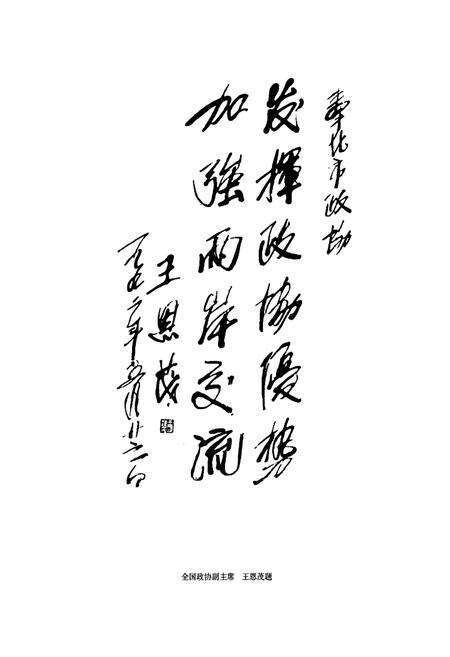 奉化市政协
发揮政協優势
加强两岸交流
王恩茂
一九九二年五月廿日
全国政协副主席 王恩茂题